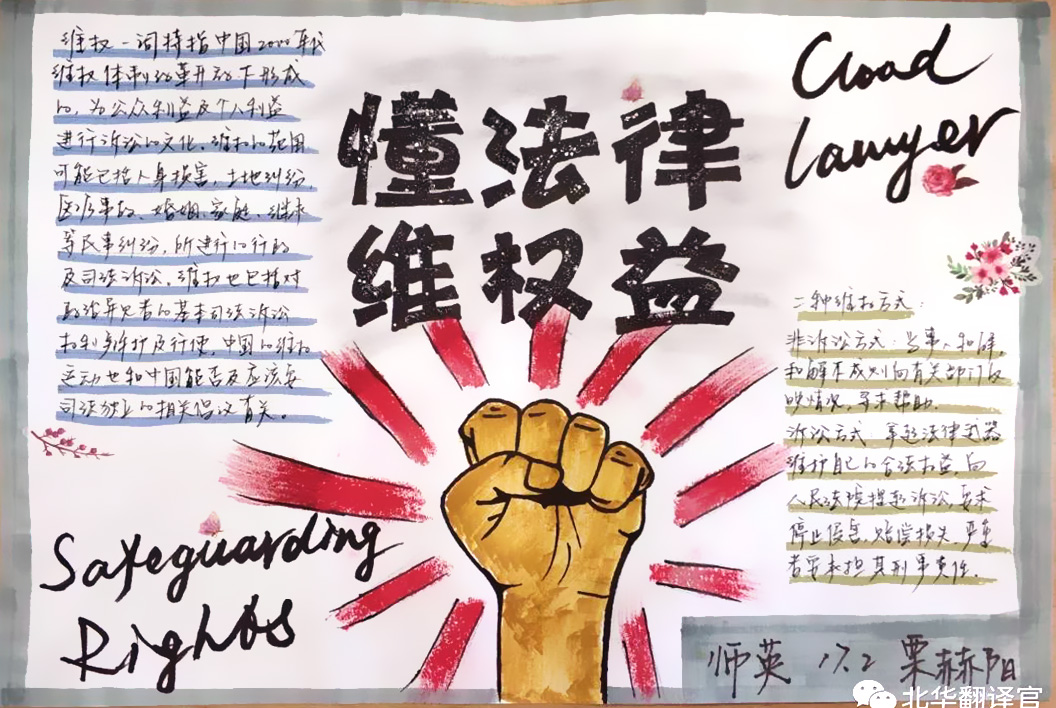 维权一词特指中国2000年代
维权体制改革开放下形成
的，为公众利益及个人利益
进行诉讼的文化。维权的范围
可能包括人身损害，土地纠纷，
医疗事故、婚姻、家庭、继承
等民事纠纷，所进行的行政
及司法诉讼。维权也包括对
政治异见者的基本司法诉讼
权利维护及行使。中国的维权
运动也和中国能否及应该
司法独立的相关倡议有关。
懂法律
维权益
Cload
Lawyer
二种维权方式：
非诉讼方式：当事人和解，
和解不成则向有关部门反
映情况，寻求帮助。
诉讼方式：拿起法律武器
维护自己的合法权益，向
人民法院提起诉讼，要求
停止侵害，赔偿损失，严重
者要承担其刑事责任。
Safeguarding
Rights
师英 17.2 栗赫阳
北华翻译官